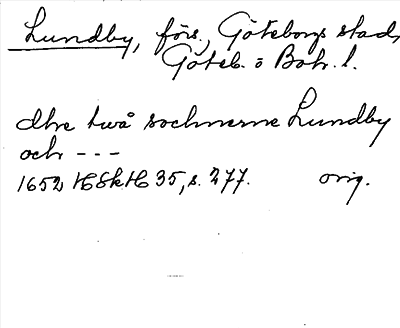 Lundby, förs., Göteborgs stad,
Göteb. o Boh. l.
dhe twå sochnerne Lundby
och - - -
1652 HSkH 35, s. 277. orig.